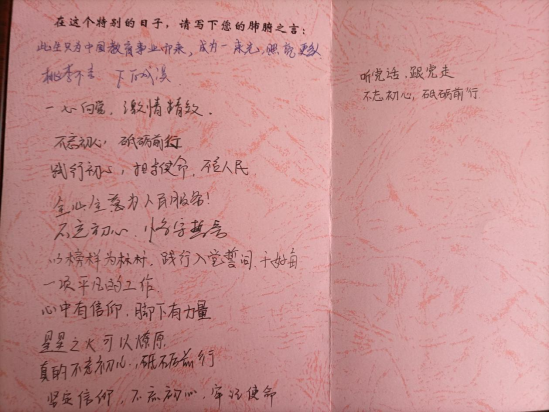 在这个特别的日子，请写下您的肺腑之言：
此生只为中国教育事业而来，成为一束光，照亮更多
桃李不言 下自成溪
一心向党，激情精效．
不忘初心，砥砺前行
践行初心，担当使命，不负人民
全心全意为人民服务！
不忘初心，
以榜样为标杆，践行入党誓词，干好每
一项平凡的工作
心中有信仰．脚下有力量
星星之火可以燎原
真的不忘初心，砥砺前行
坚定信仰，不忘初心，牢记使命
听党话，跟党走
不忘初心，砥砺前行